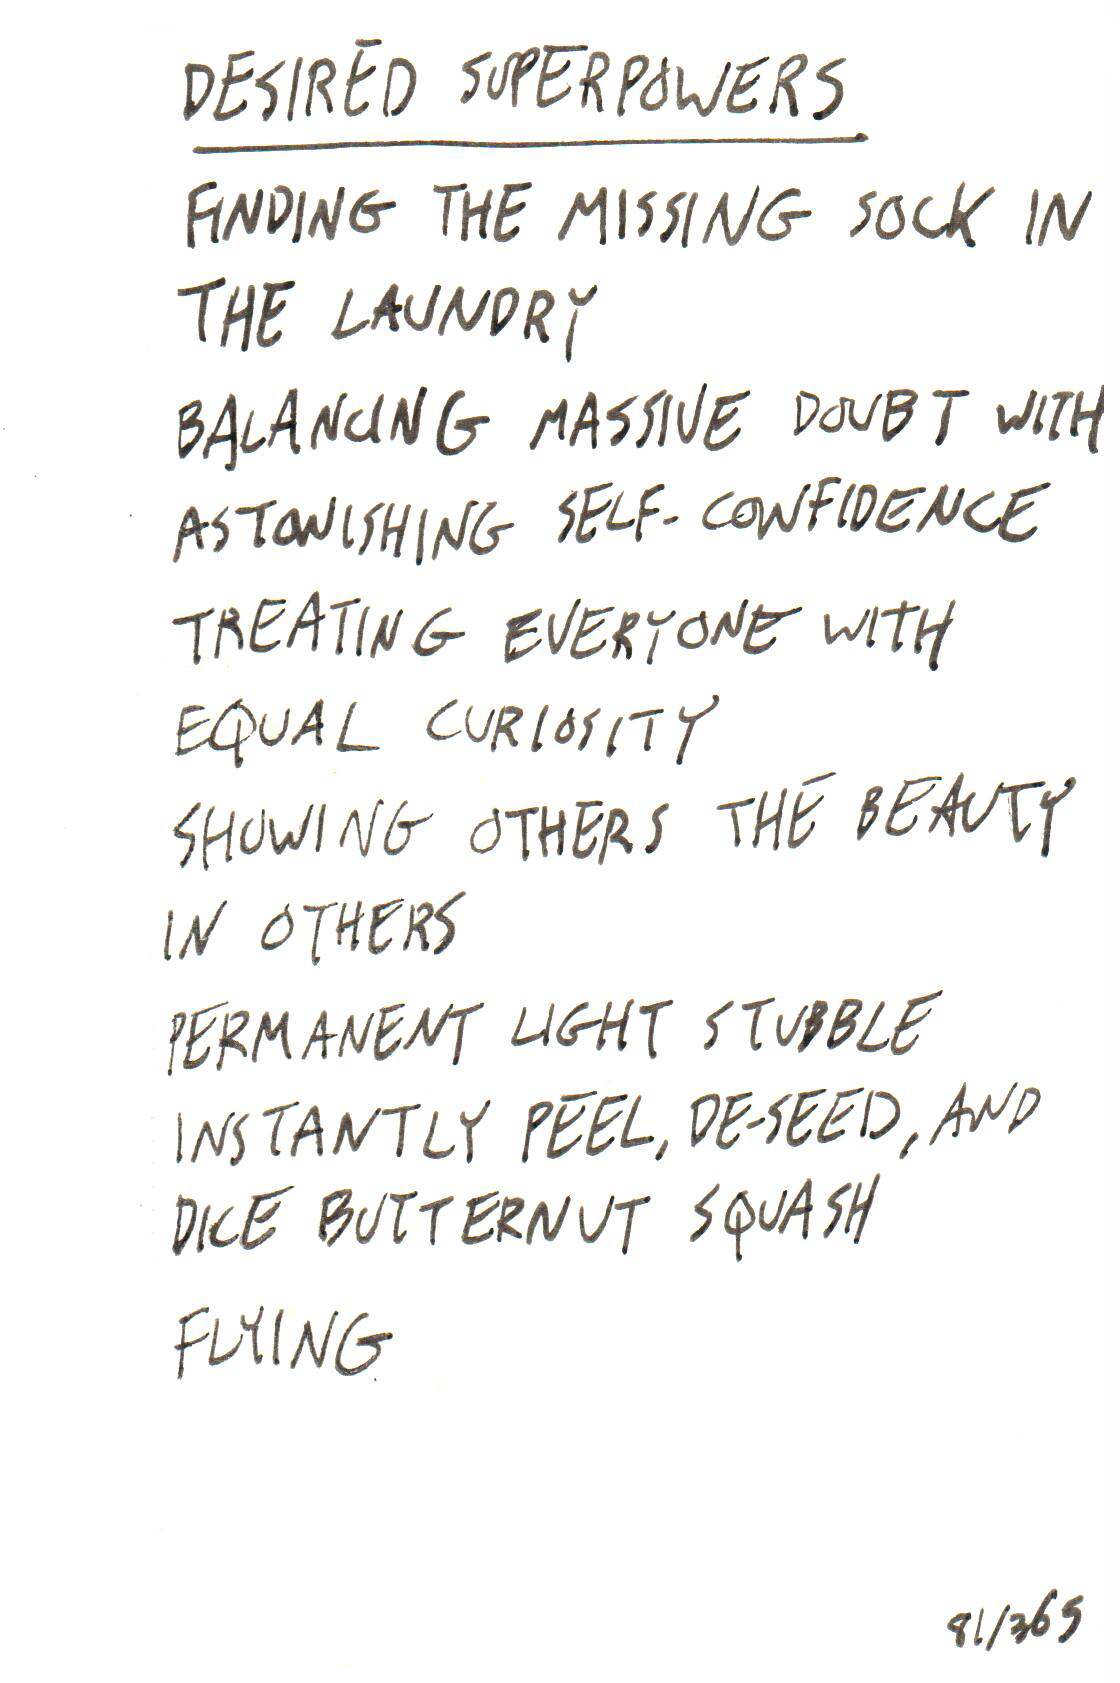 DESIRED SUPERPOWERS
FINDING THE MISSING SOCK IN
THE LAUNDRY
BALANCING MASSIVE DOUBT WITH
ASTONISHING SELF-CONFIDENCE
TREATING EVERYONE WITH
EQUAL CURIOSITY
SHOWING OTHERS THE BEAUTY
IN OTHERS
PERMANENT LIGHT STUBBLE
INSTANTLY PEEL, DE-SEED, AND
DICE BUTTERNUT SQUASH
FLYING
81/365